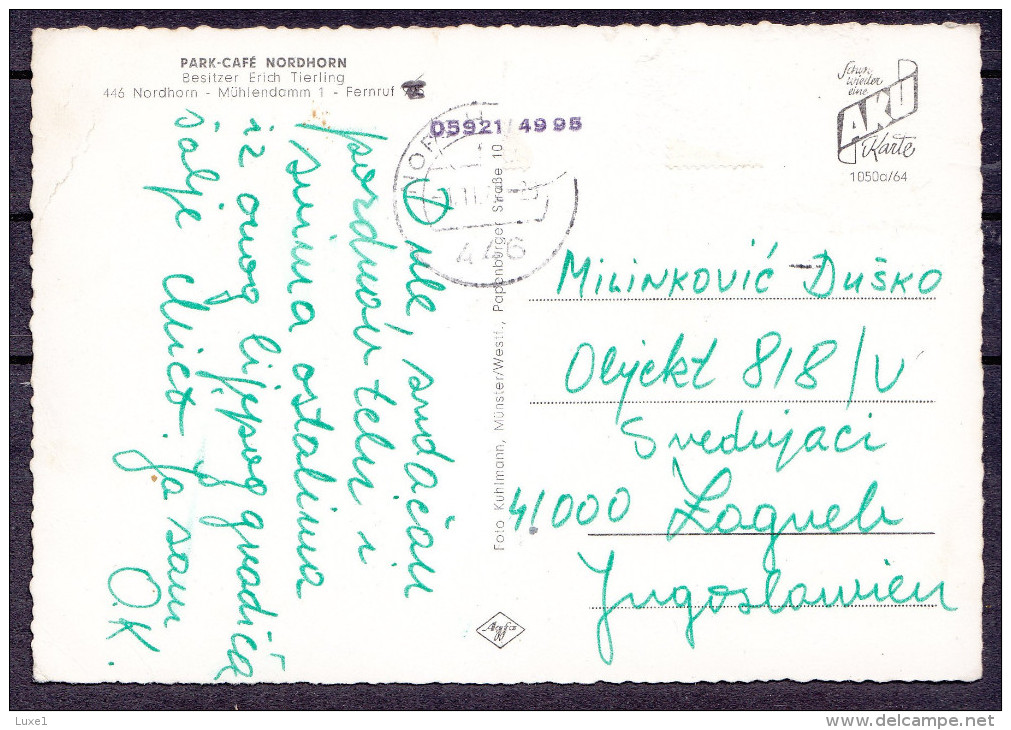 PARK-CAFÉ NORDHORN
Besitzer Erich Tierling
446 Nordhorn - Mühlendamm 1 - Fernruf
05921 4995
446
Schon
wieder
eine
AKU
Karte
1050a/64
Foto Kuhlmann, Münster/Westf., Papenburger Straße 10
Agfa
Dule, srdačan
pozdrav tebi i
svima ostalima
iz ovog lijepog gradića
šalje Mićo. Ja sam
O.K.
MILINKOVIĆ - DUŠKO
Objekt 818/V
Svedujaci
41000 Zagreb
Jugoslawien
Luxe1
delcampe.net